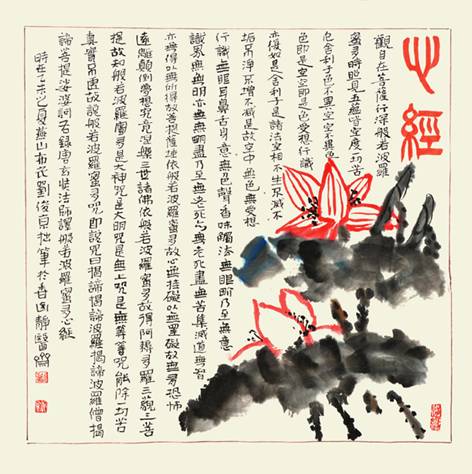 心經
觀自在菩薩行深般若波羅
蜜多時照見五蘊皆空度一切苦
厄舍利子色不異空空不異色
色即是空空即是色受想行識
亦復如是舍利子是諸法空相不生不滅不
垢不淨不增不減是故空中無色無受想
行識無眼耳鼻舌身意無色聲香味觸法無眼界乃至無意
識界無無明亦無無明盡乃至無老死亦無老死盡無苦集滅道無智
亦無得以無所得故菩提薩埵依般若波羅蜜多故心無挂礙以無罣礙故無有恐怖
遠離顛倒夢想究竟涅槃三世諸佛依般若波羅蜜多故得阿耨多羅三藐三菩
提故知般若波羅蜜多是大神咒是大明咒是無上咒是無等等咒能除一切苦
真實不虛故說般若波羅蜜多咒即說咒曰揭諦揭諦波羅揭諦波羅僧揭
諦菩提娑婆訶右錄唐玄奘法師譯般若波羅蜜多心經
時在乙未之夏燕山布衣劉俊京拙筆於香園靜